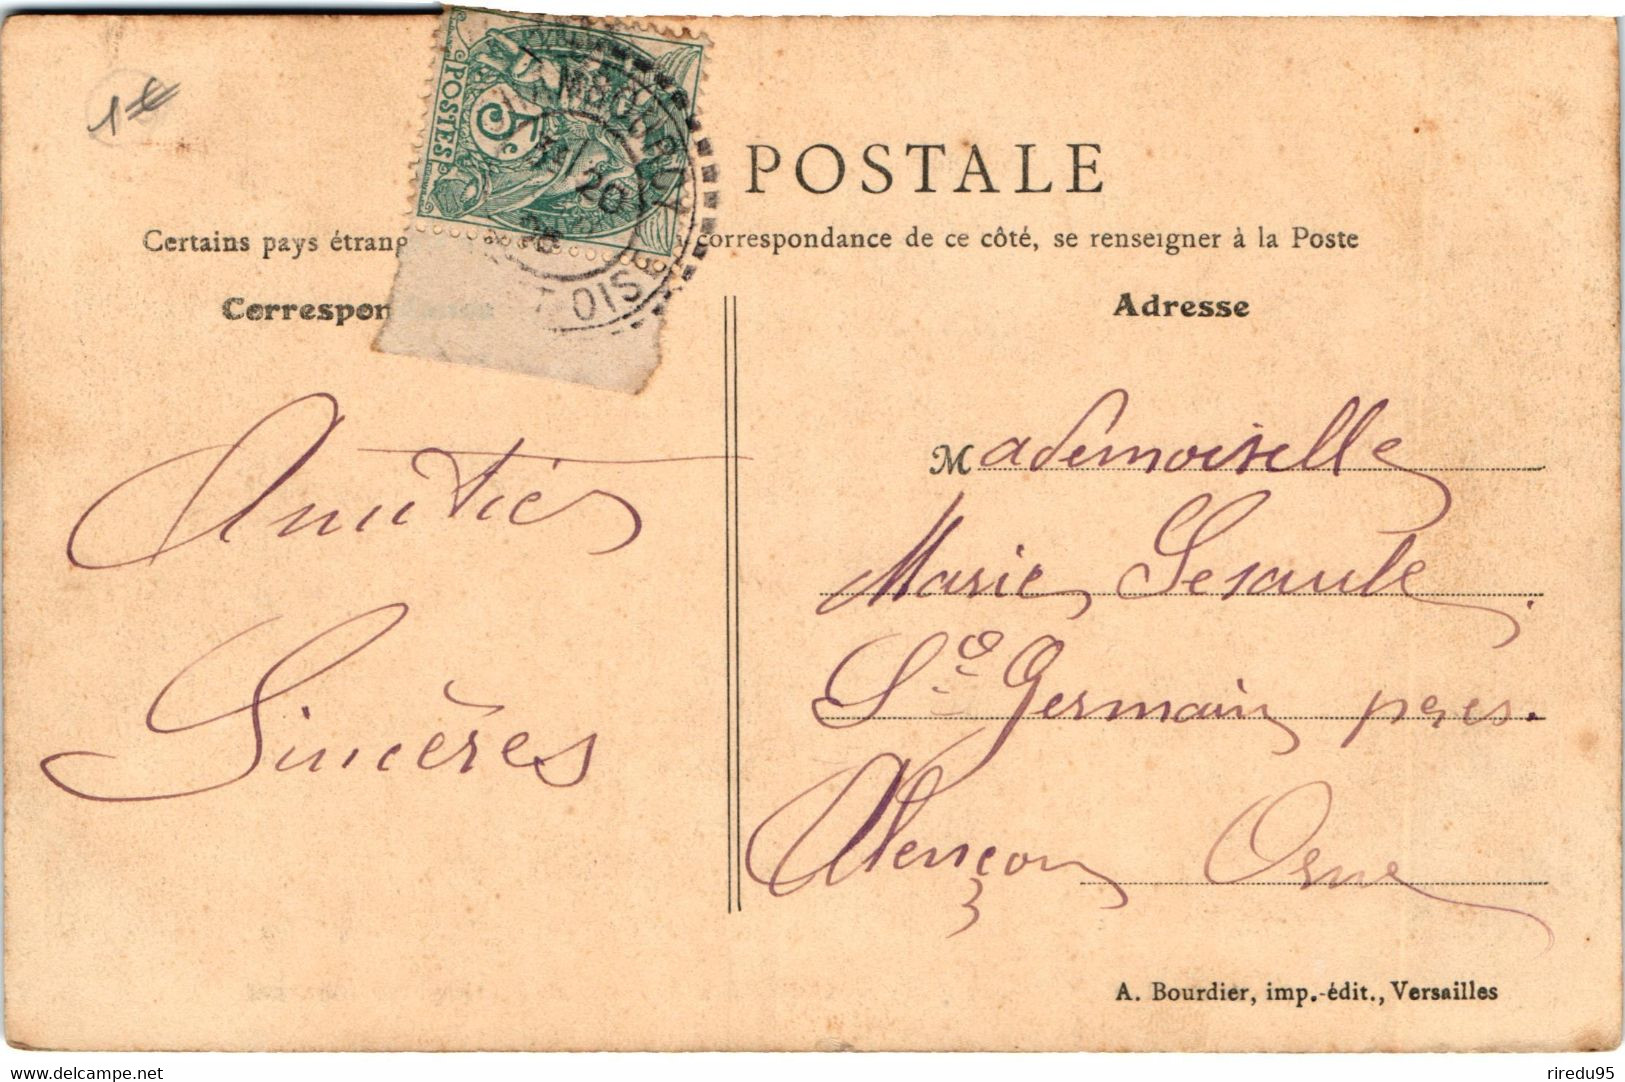 1 €
POSTES
5
POSTALE
Certains pays étrang correspondance de ce côté, se renseigner à la Poste
Correspon
Adresse
OISE
Amitiés
Sincères
Mademoiselle
Marie
St Germain près
Alençon Orne
A. Bourdier, imp.-édit., Versailles
delcampe.net
riredu95